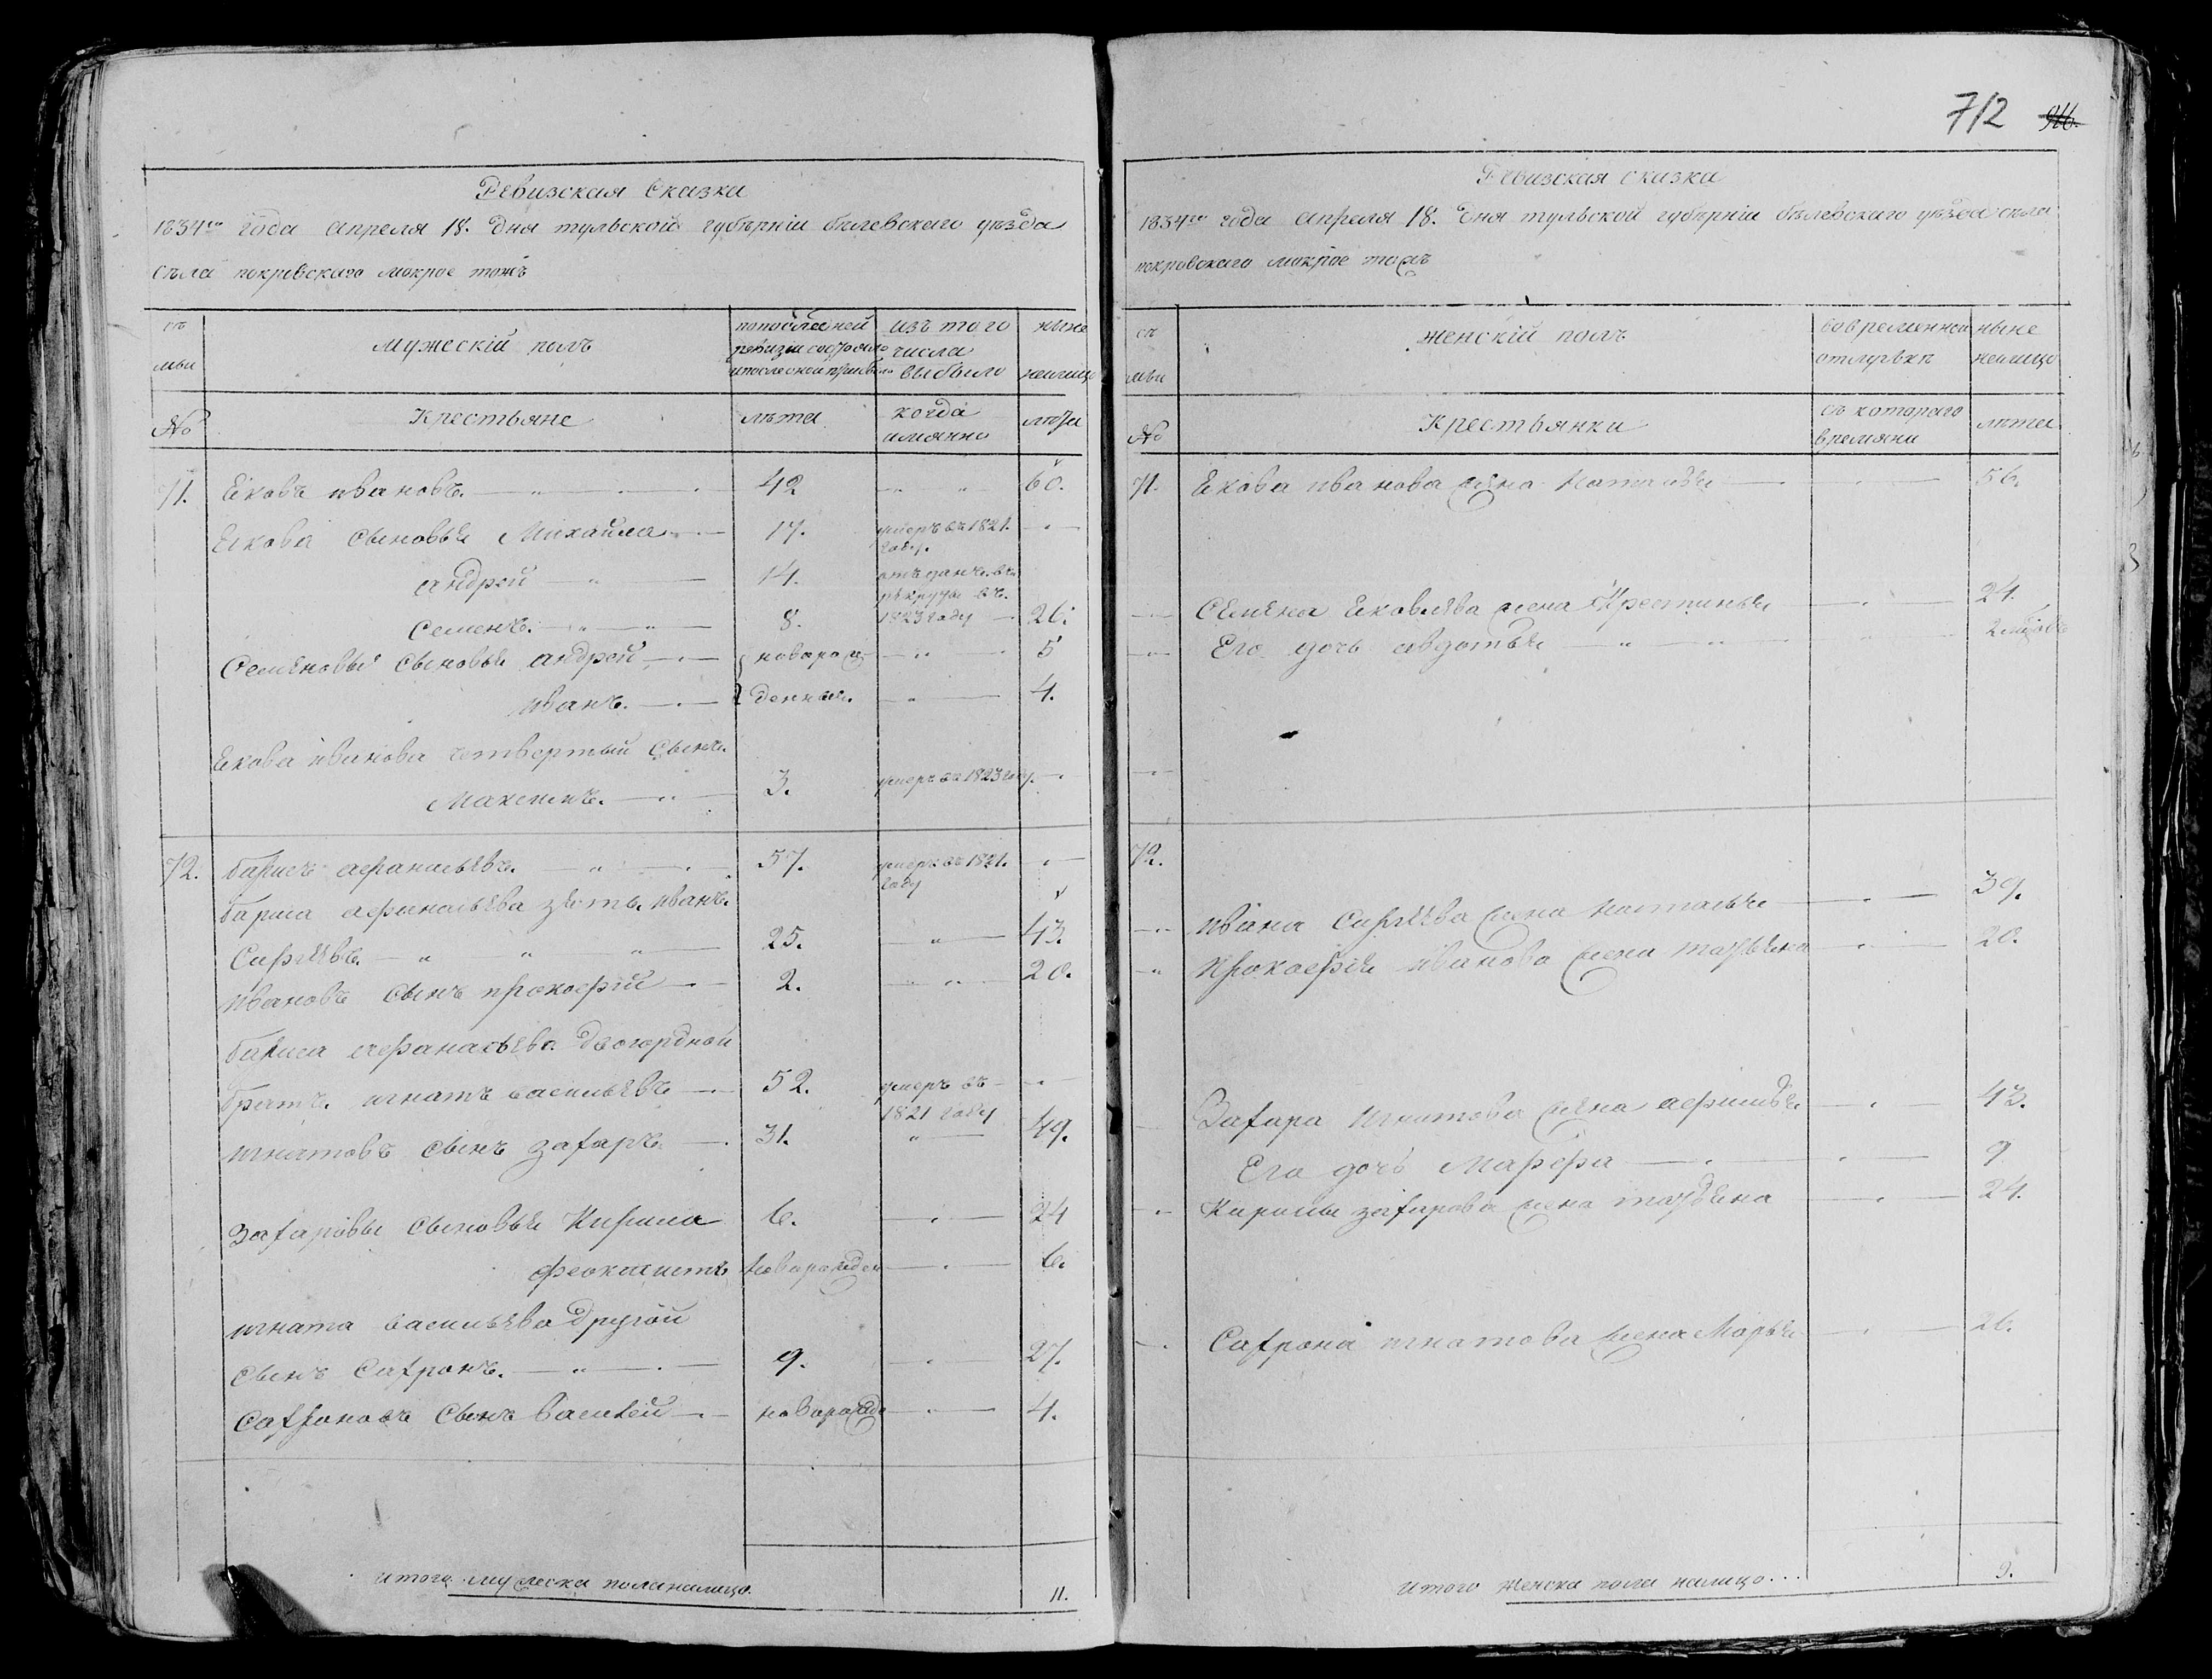 712 946.
Ревизская Сказка
1834го года апреля 18. дня тульской губерніи белевскаго уезда
села покровскаго мокрое тожъ
се
мьи
мужескій полъ
попоследней
ревизіи состояло
ипослеоной прибыло
изъ того
числа
выбыло
ныне
налицо
№
Крестьяне
лѣта
когда
имянно
лѣта
71. Ековъ ивановъ. 42 60.
Екова сыновья Михайла 17. умеръ въ 1821.
году.
андрей 14. отъданъ въ
рекруты въ
1823 году
Семенъ. 8. 26.
Семеновы сыновья андрей новарож 5
иванъ. денныя. 4.
Екова иванова четвертый сынъ
Максимъ. 3. умеръ въ 1823 году.
72. барисъ афанасьевъ. 57. умеръ въ 1821.
году
бариса афанасьева зять иванъ
Саргѣевъ. 25. 43.
ивановъ сынъ прокофій 2. 20.
бариса афанасьева двоюрдной
братъ игнатъ васильевъ 52. умеръ въ
1821 году
игнатовъ сынъ захаръ 31. 49.
Захаровы сыновья Кирила 6. 24
феоктистъ новарожден 6.
игната васильева другой
сынъ Сафронъ. 9. 27.
Сафроновъ сынъ василей новарожде 4.
итого мужеска поланалицо. 11.
Ревизская сказка
1834го года апреля 18. дня тульской губерніи белевскаго уезда села
покровскаго мокрое тожъ
се
мьи
женскій полъ
вовременной
отлучкѣ
ныне
налицо
№
Крестьянки
съ котораго
времяни
лѣта
71. Екова иванова жена Наталья 56.
Семена Ековлева жена Крестинья 24.
Его дочь авдотья
72.
ивана Саргѣева жена Наталья 39.
Прокофія иванова жена татьяна 20.
Захара игнатова жена афимья 43.
Его дочь Марфа 9
Кирилы захарова жена татьяна 24.
Сафрона игнатова жена Марья 26.
итого женска пола налицо... 9.